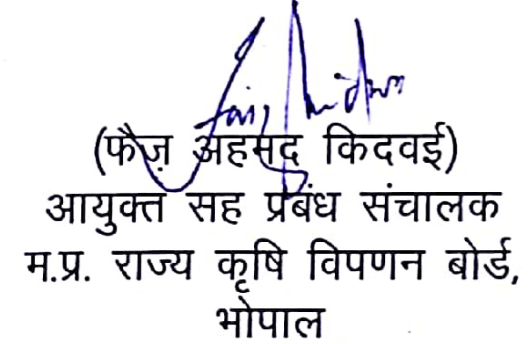 (फैज़ अहमद किदवई)
आयुक्त सह प्रबंध संचालक
म.प्र. राज्य कृषि विपणन बोर्ड,
भोपाल